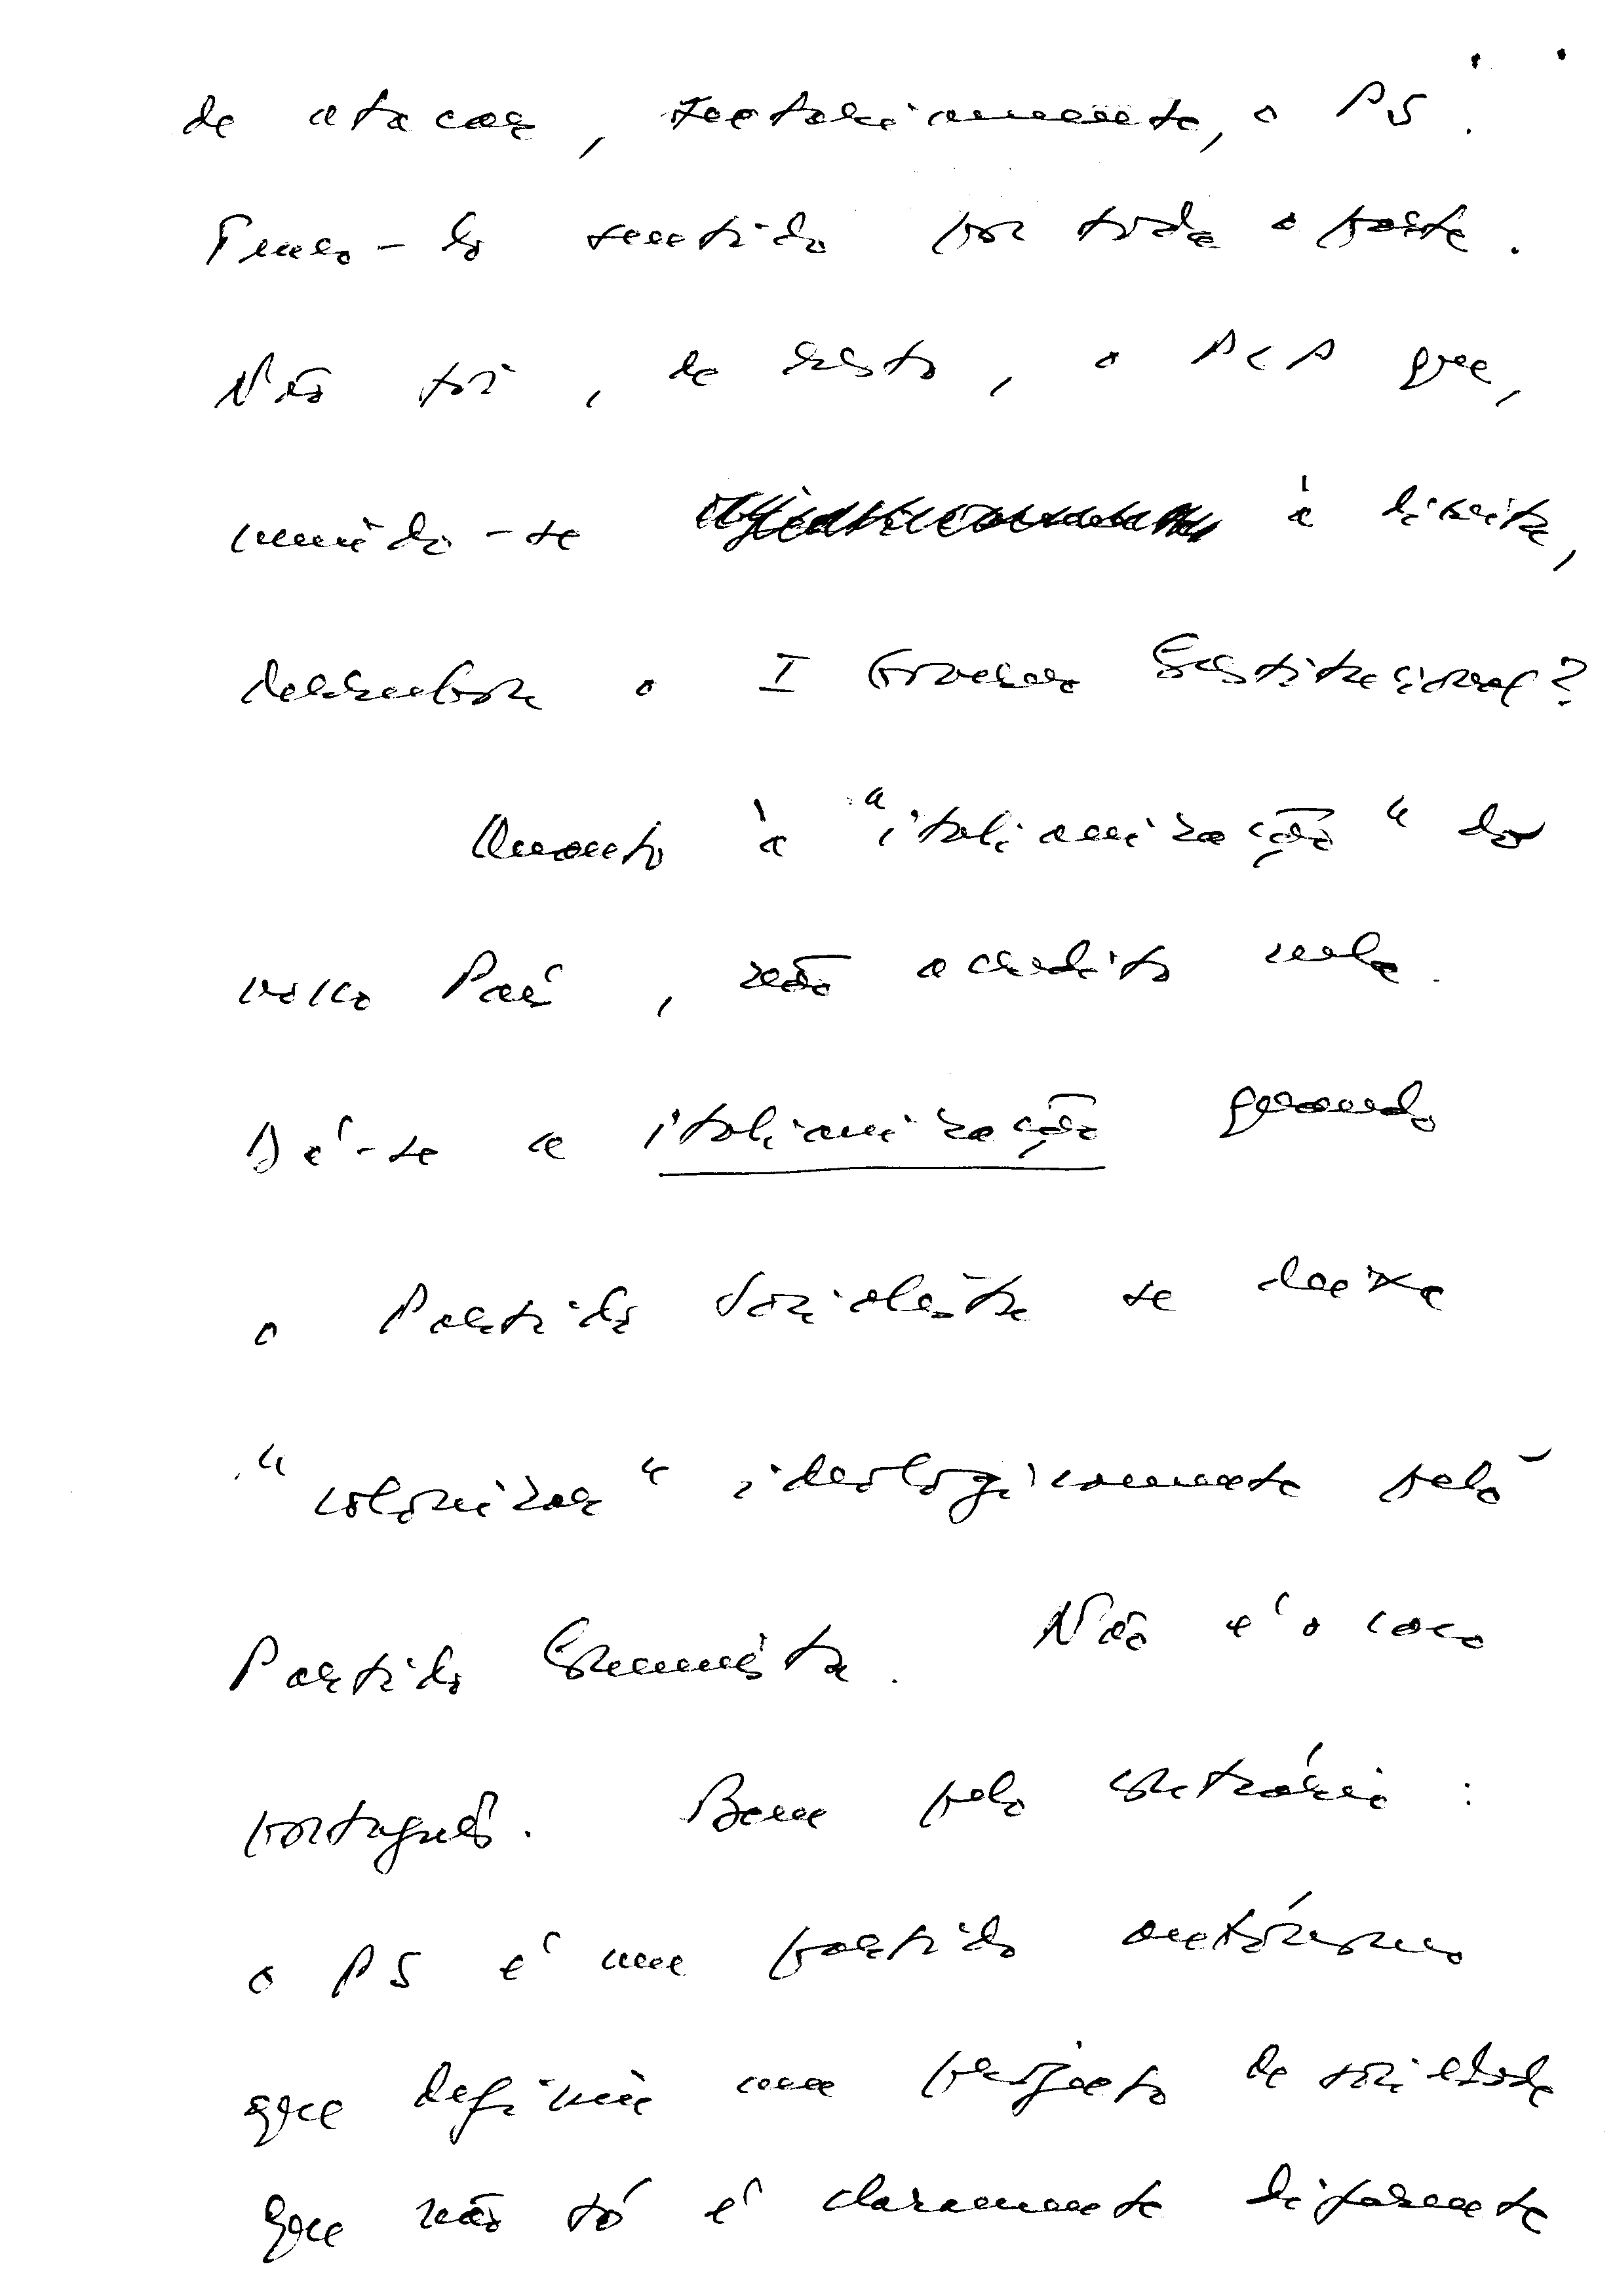 de atacar, sectariamente, o PS.
Temo-lo sentido por toda a parte.
Não foi, de resto, o PCP que,
unindo-se à direita,
derrubou o I Governo Constitucional?
Quanto à "italianização" do
nosso País, não acredito nela.
Dá-se a italianização quando
o Partido Socialista se deixa
"colonizar" ideologicamente pelo
Partido Comunista. Não é o caso
português. Bem pelo contrário:
o PS é um partido autónomo
que definiu um projecto de sociedade
que não só é claramente diferente